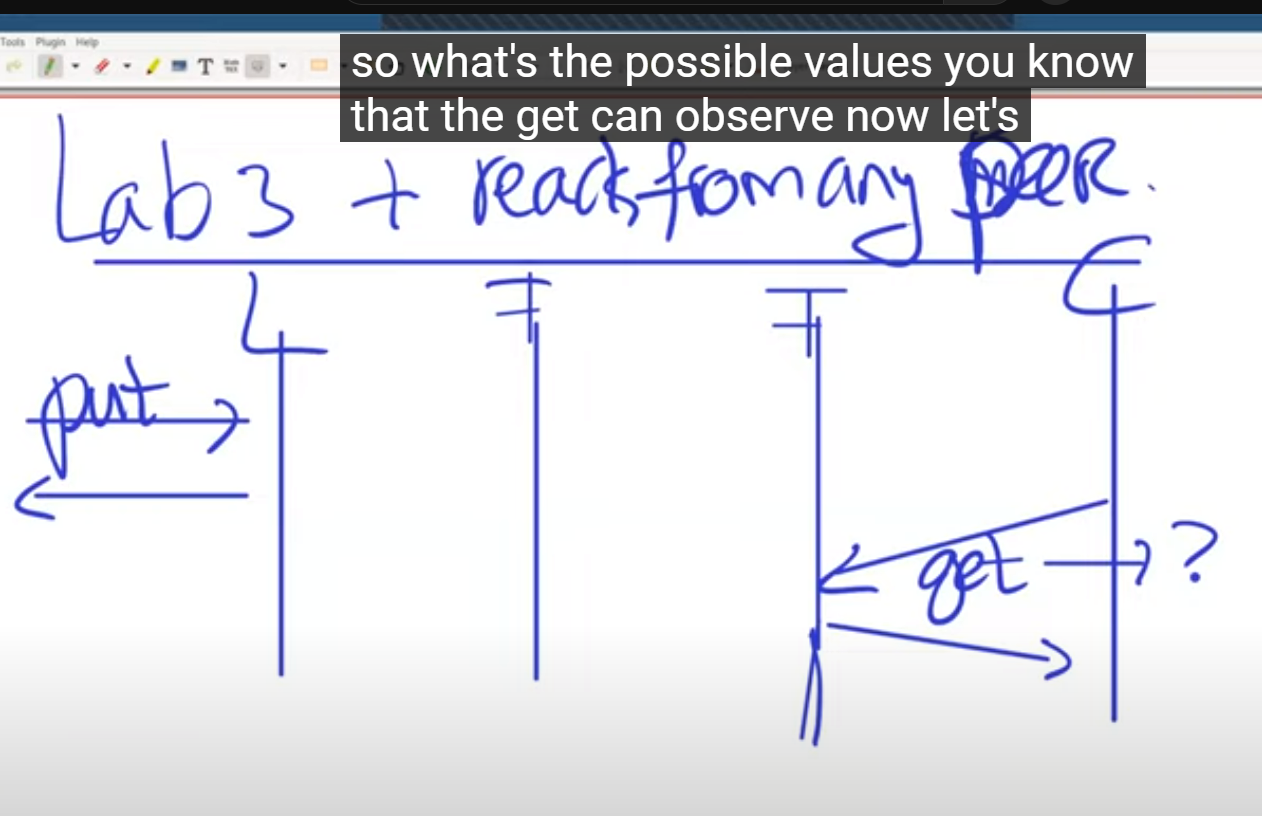 Tools Plugin Help
T
so what's the possible values you know
that the get can observe now let's
Lab 3 + reads from any PEER.
L F F C
put
get → ?